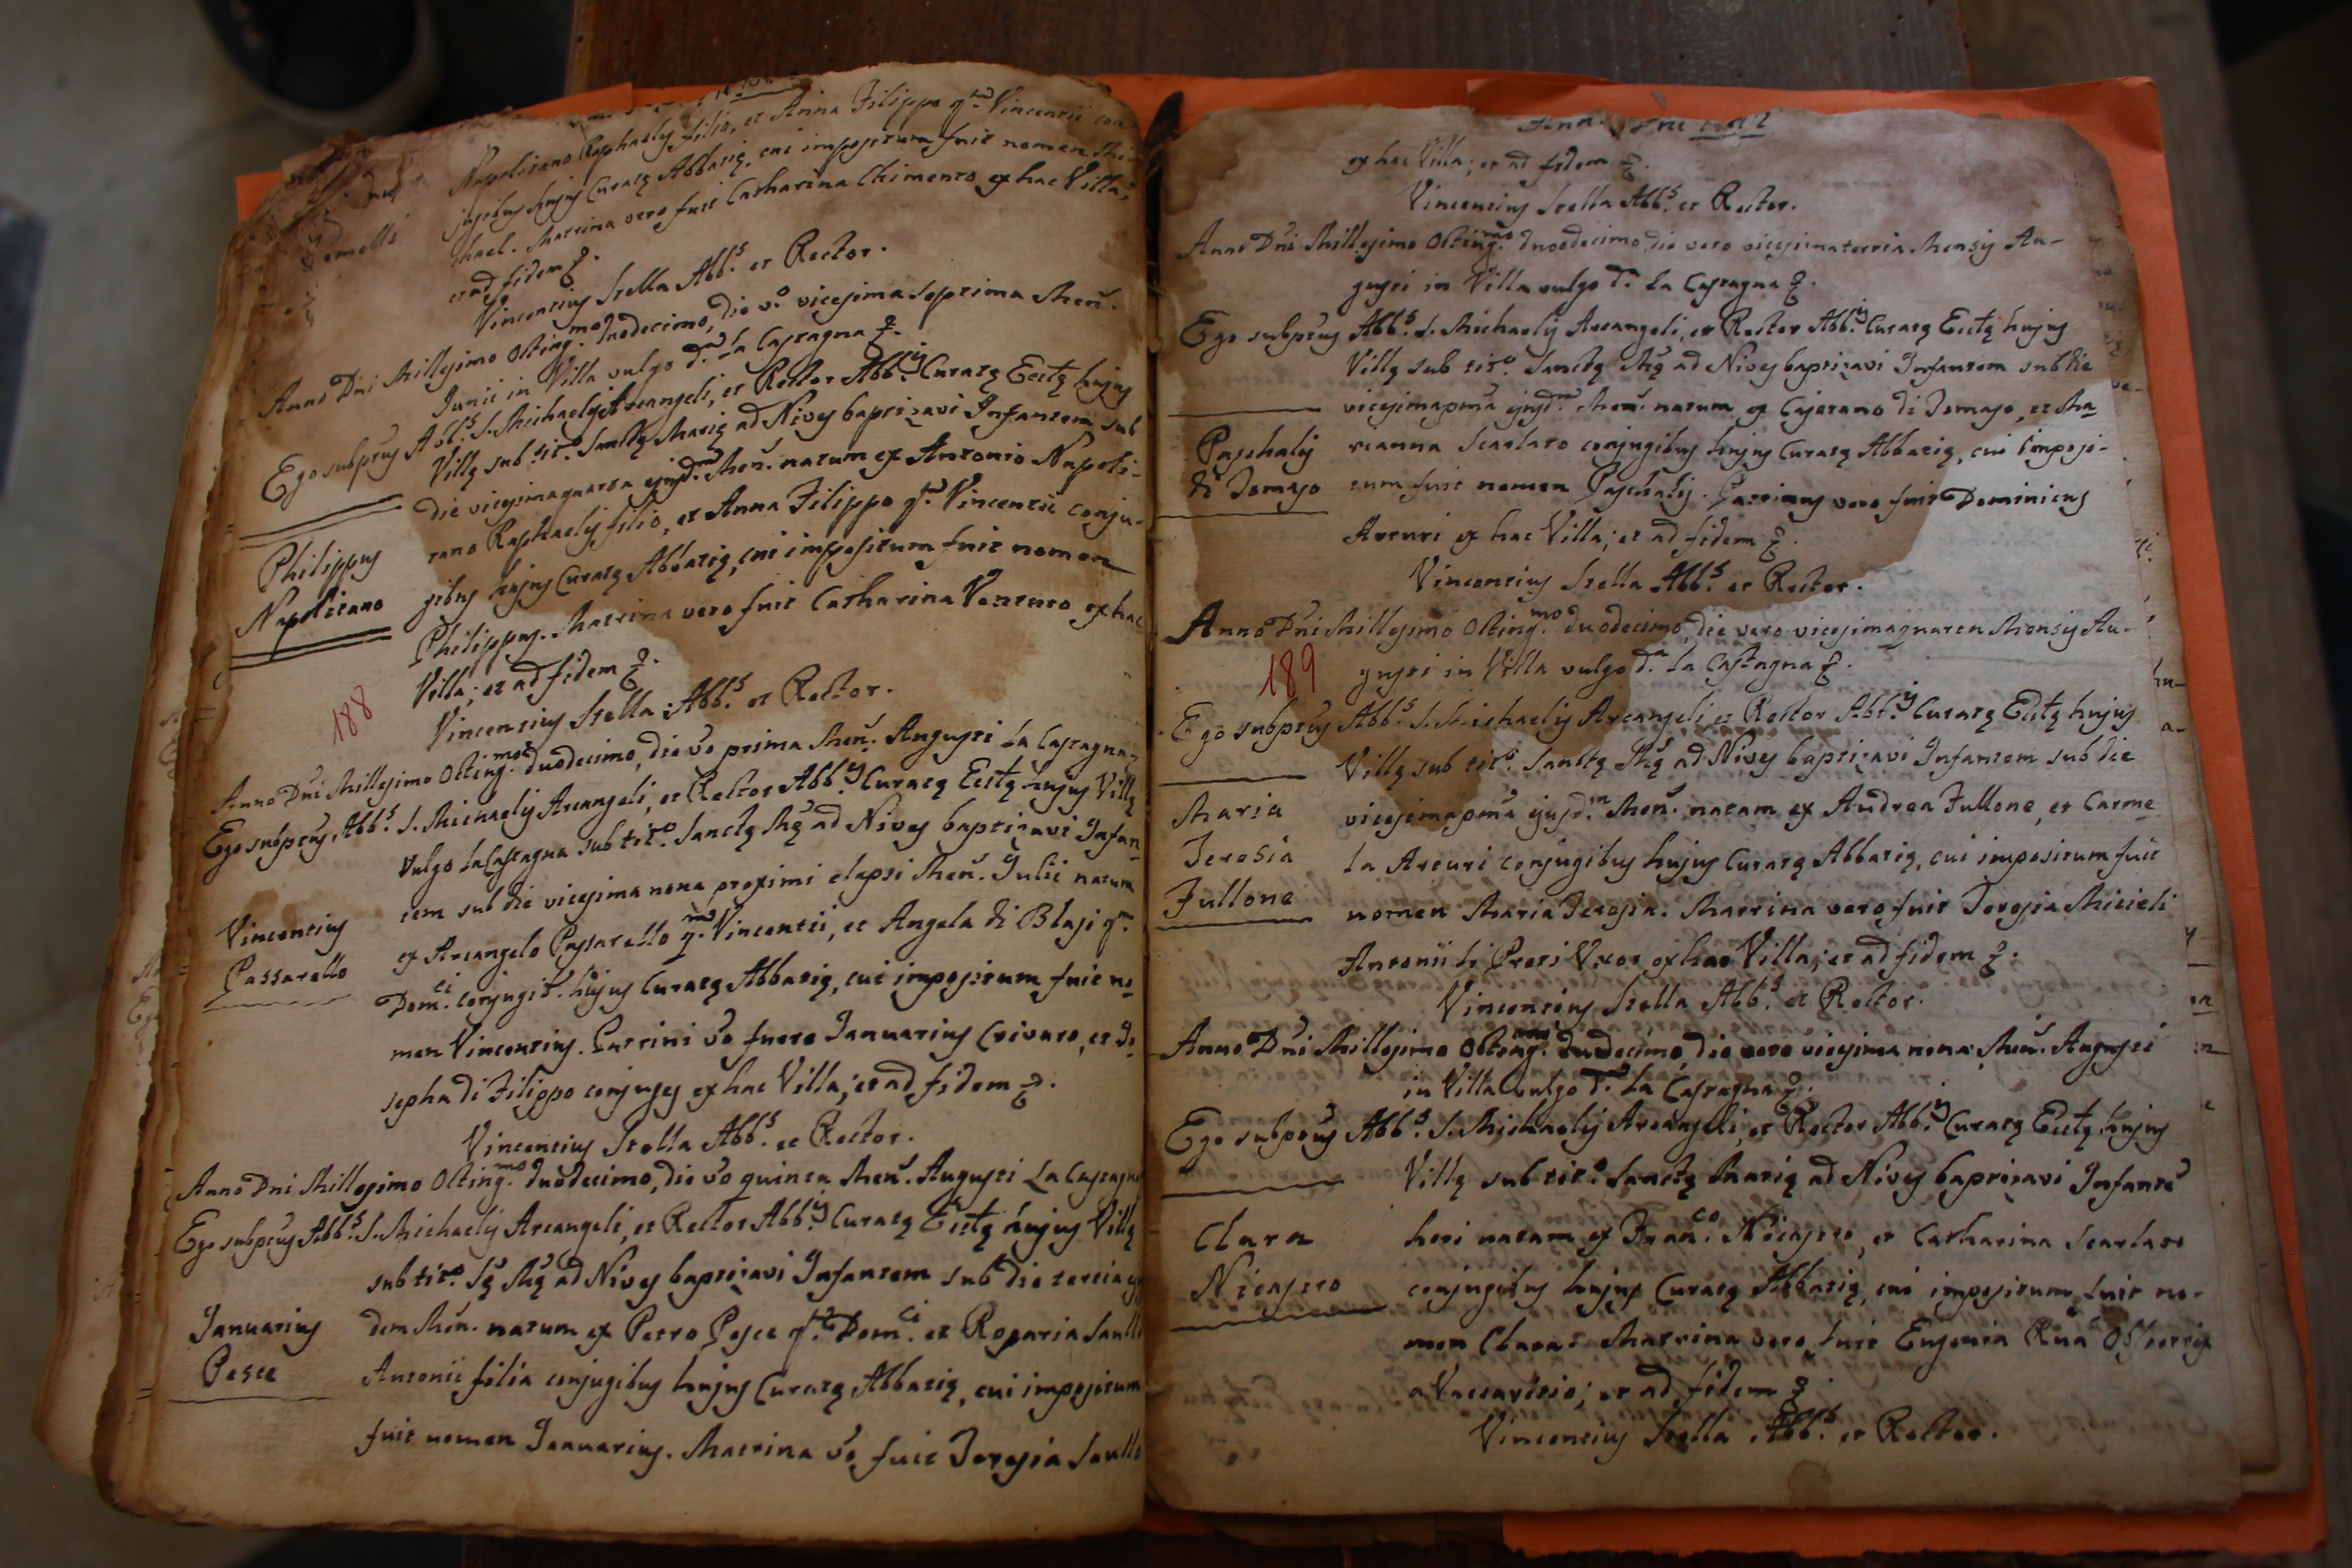 Napolitano Raphaelis filio, et Anna Filippo q.m Vincentii con-
jugibus hujus Curatę Abbatię, cui impositum fuit nomen Mi-
Gemelli
chael. Matrina vero fuit Catharina Chimento ex hac Villa;
et ad fidem
Vincentius Stella Abb.s et Rector.
Anno Dni Millesimo Octing.mo duodecimo, die vo vicesima septima Men.
Junii in Villa vulgo d.a La Castagna
Ego subptus Abb.s S. Michaelis Arcangeli, et Rector Abb.is Curatę Ecctę hujus
Villę sub tit.o Sanctę Marię ad Nives baptizavi Infantem sub
die vicesimaquarta ejusd.m Men. natum ex Antonio Napoli-
Philippus
Napolitano
tano Raphaelis filio, et Anna Filippo q.m Vincentii conju-
gibus hujus Curatę Abbatię, cui impositum fuit nomen
Philippus. Matrina vero fuit Catharina Venturo ex hac
Villa; et ad fidem
188
Vincentius Stella Abb.s et Rector.
Anno Dni Millesimo Octing.mo duodecimo, die vo prima Men. Augusti La Castagna
Ego subptus Abb.s S. Michaelis Arcangeli, et Rector Abb.is Curatę Ecctę hujus Villę
vulgo La Castagna sub tit.o Sanctę Mę ad Nives baptizavi Infan-
tem sub die vicesima nona proximi elapsi Men. Julii natum
Vincentius
Passarello
ex Arcangelo Passarello q.m Vincentii, et Angela di Blasi q.m
Dom.ci conjugib. hujus Curatę Abbatię, cui impositum fuit no-
men Vincentius. Patrini vo fuere Januarius Crivaro, et Jo-
sepha di Filippo conjuges ex hac Villa; et ad fidem
Vincentius Stella Abb.s et Rector.
Anno Dni Millesimo Octing.mo duodecimo, die vo quinta Men. Augusti La Castagna
Ego subptus Abb.s S. Michaelis Arcangeli, et Rector Abb.is Curatę Ecctę hujus Villę
sub tit.o Sę Mę ad Nives baptizavi Infantem sub die tertia
Januarius
Pesce
dem Men. natum ex Petro Pesce q.m Dom.ci et Rosaria
Antonii filia conjugibus hujus Curatę Abbatię, cui impositum
fuit nomen Januarius. Matrina vo fuit Teresia
ex hac Villa; et ad fidem
Vincentius Stella Abb.s et Rector.
Anno Dni Millesimo Octing.mo duodecimo die vero vicesimatertia Mensis Au-
gusti in Villa vulgo d.a La Castagna
Ego subptus Abb.s S. Michaelis Arcangeli, et Rector Abb.is Curatę Ecctę hujus
Villę sub tit.o Sanctę Mę ad Nives baptizavi Infantem sub die
vicesimapma ejusd.m Men. natum ex Cajetano di Tomaso, et Ma
Paschalis
di Tomaso
rianna Scarlato conjugibus hujus Curatę Abbatię, cui imposi-
tum fuit nomen Paschalis. Patrinus vero fuit Dominicus
Arcuri ex hac Villa; et ad fidem
Vincentius Stella Abb.s et Rector.
Anno Dni Millesimo Octing.mo duodecimo, die vero vicesimaquarta Mensis Au-
189
gusti in Villa vulgo d.a La Castagna
Ego subptus Abb.s S. Michaelis Arcangeli et Rector Abb.is Curatę Ecctę hujus
Villę sub tit.o Sanctę Mę ad Nives baptizavi Infantem sub die
Maria
Teresia
Fullone
vicesimapma ejusd.m Men. natam ex Andrea Fullone, et Carme
la Arcuri conjugibus hujus Curatę Abbatię, cui impositum fuit
nomen Maria Teresia. Matrina vero fuit Teresia Micieli
Antonii li Preti Uxor ex hac Villa; et ad fidem
Vincentius Stella Abb.s et Rector.
Anno Dni Millesimo Octing.mo duodecimo, die vero vicesima nona Men. Augusti
in Villa vulgo d.a La Castagna
Ego subptus Abb.s S. Michaelis Arcangeli, et Rector Abb.is Curatę Ecctę hujus
Villę sub tit.o Sanctę Marię ad Nives baptizavi Infante
Clara
Nicastro
heri natam ex Fran.co Nicastro, et Catharina Scarlato
conjugibus hujus Curatę Abbatię, cui impositum fuit no-
men Clara. Matrina vero fuit Eugenia Rua Obstetrix
a Vaccavitio; et ad fidem
Vincentius Stella Abb.s et Rector.